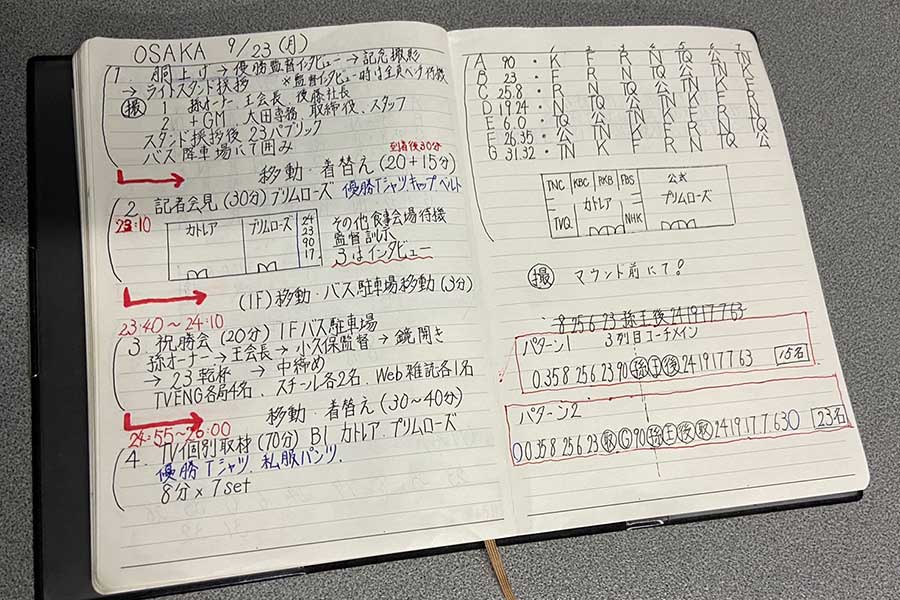 OSAKA 9/23(月)
1. 胴上げ→優勝監督インタビュー→記念撮影
→ライトスタンド挨拶 ※監督インタビュー時は全員ベンチ待機
撮 1 孫オーナー 王会長 後藤社長
2 +GM、太田専務、取締役、スタッフ
スタンド挨拶後、23パブリック
バス降車場にて囲み
到着後30分
移動・着替え(20+15分)
2. 記者会見(30分)プリムローズ 優勝Tシャツキャップ ベルト
23:10
カトレア プリムローズ
24
23
90
17
その他食事会場待機
監督訓示
3はインタビュー
(1F)移動・バス駐車場移動(3分)
23:40〜24:10
3. 祝勝会(20分)1Fバス駐車場
孫オーナー→王会長→小久保監督→鏡開き
→23乾杯→中締め
TVENG各局4名、スチール各2名、Web雑誌各1名
移動・着替え(30〜40分)
24:55〜26:00
4. TV個別取材(70分)B1 カトレア、プリムローズ
優勝Tシャツ、私服パンツ、
8分×7set
1 2 3 4 5 6 7
A 90 ・ K F R N TQ 公 TN
B 23 ・ F R N TQ 公 TN K
C 25.8 ・ R N TQ 公 TN K F
D 19.24 ・ N TQ 公 TN K F R
E 6.0 ・ TQ 公 TN K F R N
F 26.35 ・ 公 TN K F R N TQ
G 31.32 ・ TN K F R N TQ 公
TNC KBC RKB FBS 公式
カトレア プリムローズ
TVQ NHK
撮 マウンド前にて?
8 25 6 23 孫王後 24 19 17 7 63
パターン1 3列目コーチメイン
0.35 8 25 6 23 90 孫王後 24 19 17 7 63 15名
パターン2
0 0.35 8 25 6 23 取 G 90 孫王後取 24 19 17 7 63 0 23名